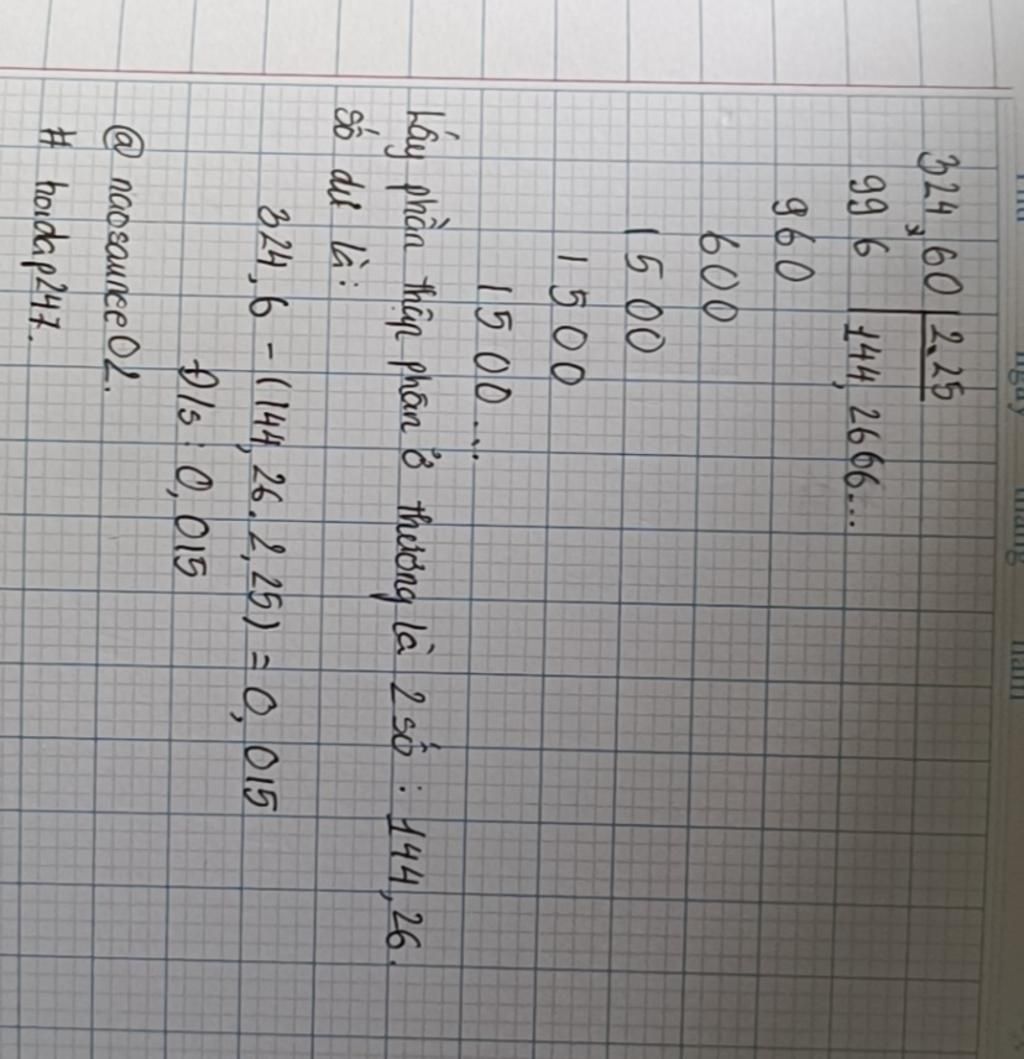 324,60 | 2.25
996 | 144,2666...
960
600
1500
1500
1500...
Lấy phần thập phân ở thương là 2 số : 144,26.
Số dư là:
324,6 - (144,26.2,25) = 0,015
Đ/s : 0,015
# hoidap247.